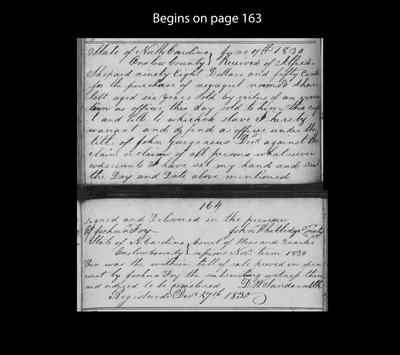 Begins on page 163
State of North Carolina } June 17th 1830
Onslow County } Received of Alfred
Shepard ninety Eight Dollars and fifty Cents
for the purchase of negro girl named Char
lott aged six years sold by virtue of an
as officer this day sold to him the rig
t and title to which slave I hereby
warrant and defend as officer under the
title of John Gurganous Decd against the
claim or claims of all persons whatsoever
whereunto I have set my hand and
the Day and Date above mentioned
164
Signed and Delivered in the presence
of Joshua Foy John Whitledge
State of N. Carolina } Court of Pleas and Quarter
Onslow County } sessions Novr. term 1830
Then was the within bill of sale proved in open
court by Joshua Foy the subscribing witness thereto
and ordered to be registered D. W. Sanders
Registered Decr 17th 1830